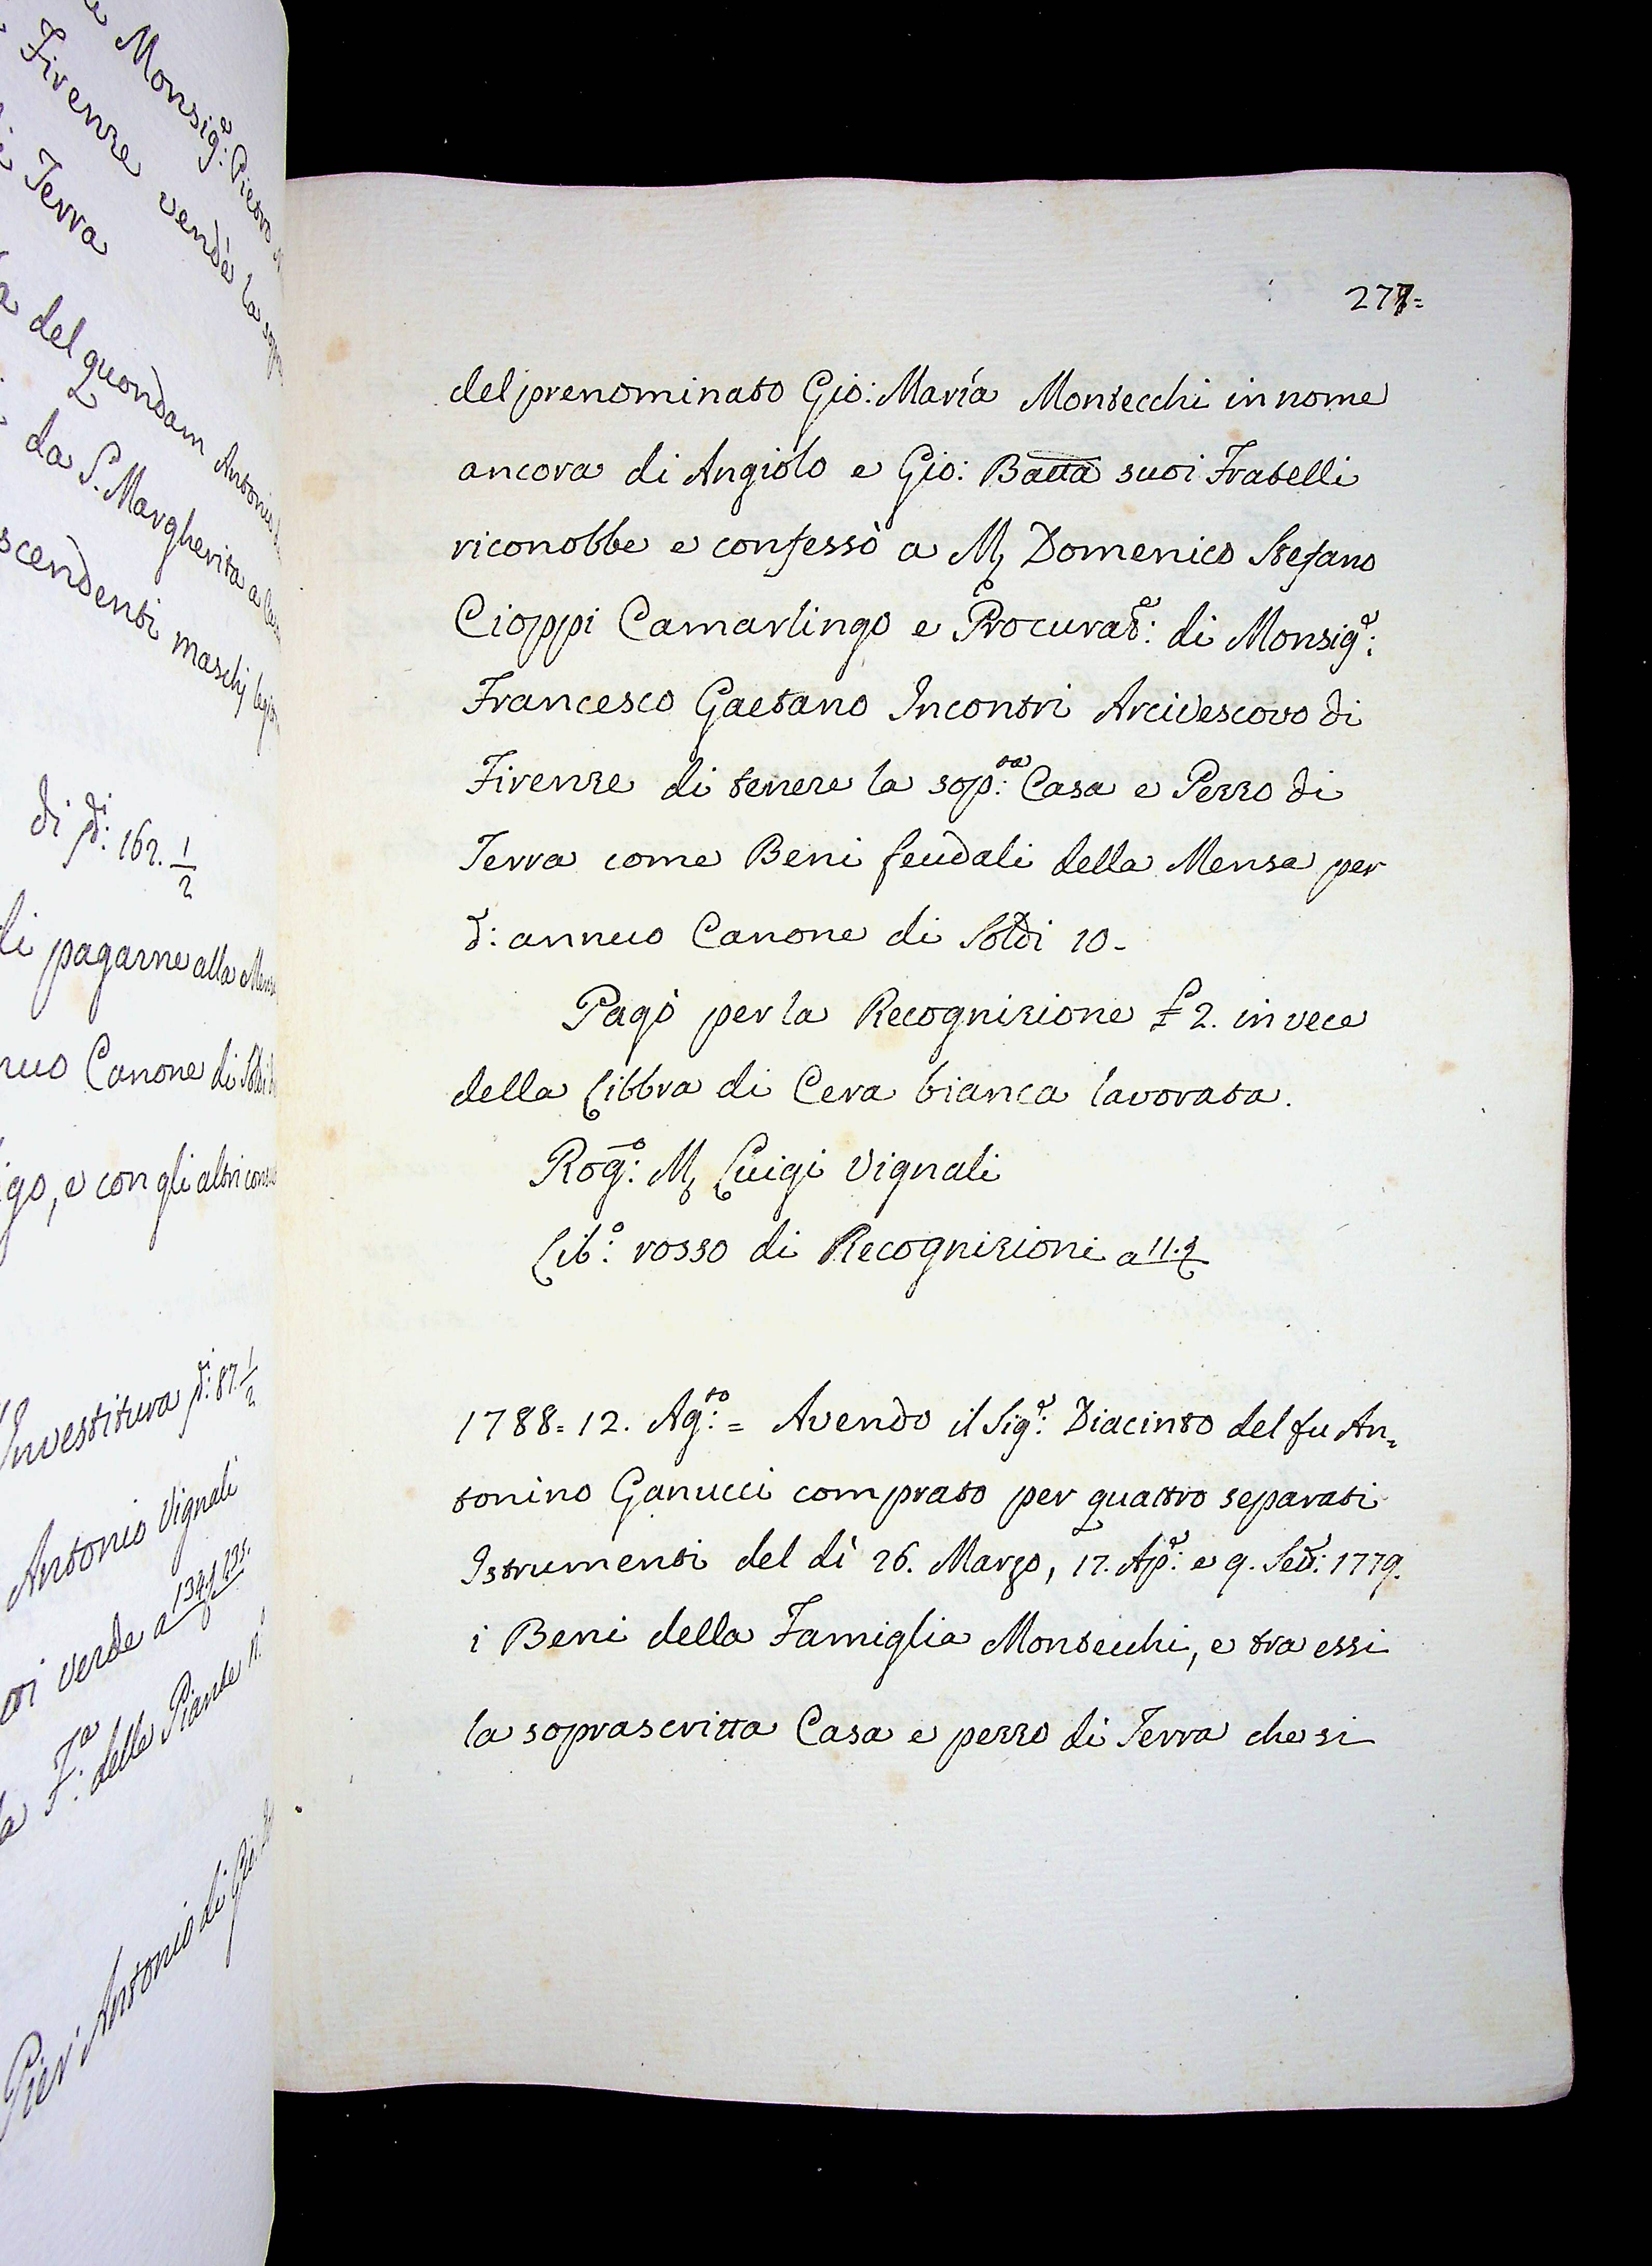 e Monsig:e Pietro
Firenze vendè la
i Terra
del quondam Antonio
da S. Margherita a
scendenti maschj
di di: 162. 1/2
di pagarne alla Mensa
nuo Canone di Soldi
igo, e con gli altri
Investitura di: 87. 1/2
Antonio Vignali
verde a
F.a delle Piante n.o
Pier Antonio di
277=
del prenominato Gio: María Montecchi in nome
ancora di Angiolo e Gio: Batta suoi Fratelli
riconobbe e confessò a M, Domenico Stefano
Cioppi Camarlingo e Procurat:e di Monsig:e
Francesco Gaetano Incontri Arcivescovo di
Firenze di tenere la sop:ta Casa e Pezzo di
Terra come Beni feudali della Mensa per
d: annuo Canone di Soldi 10-
Pagò per la Recognizione £ 2. in vece
della Libbra di Cera bianca lavorata.
Rog:o M, Luigi Vignali
Lib:o rosso di Recognizioni a
1788=12. Ag:to = Avendo il Sig:e Diacinto del fu An=
tonino Ganucci comprato per quattro separati
Istrumenti del dì 26. Marzo, 17. Ap:e e 9. Set: 1779.
i Beni della Famiglia Montecchi, e tra essi
la soprascritta Casa e pezzo di Terra che si